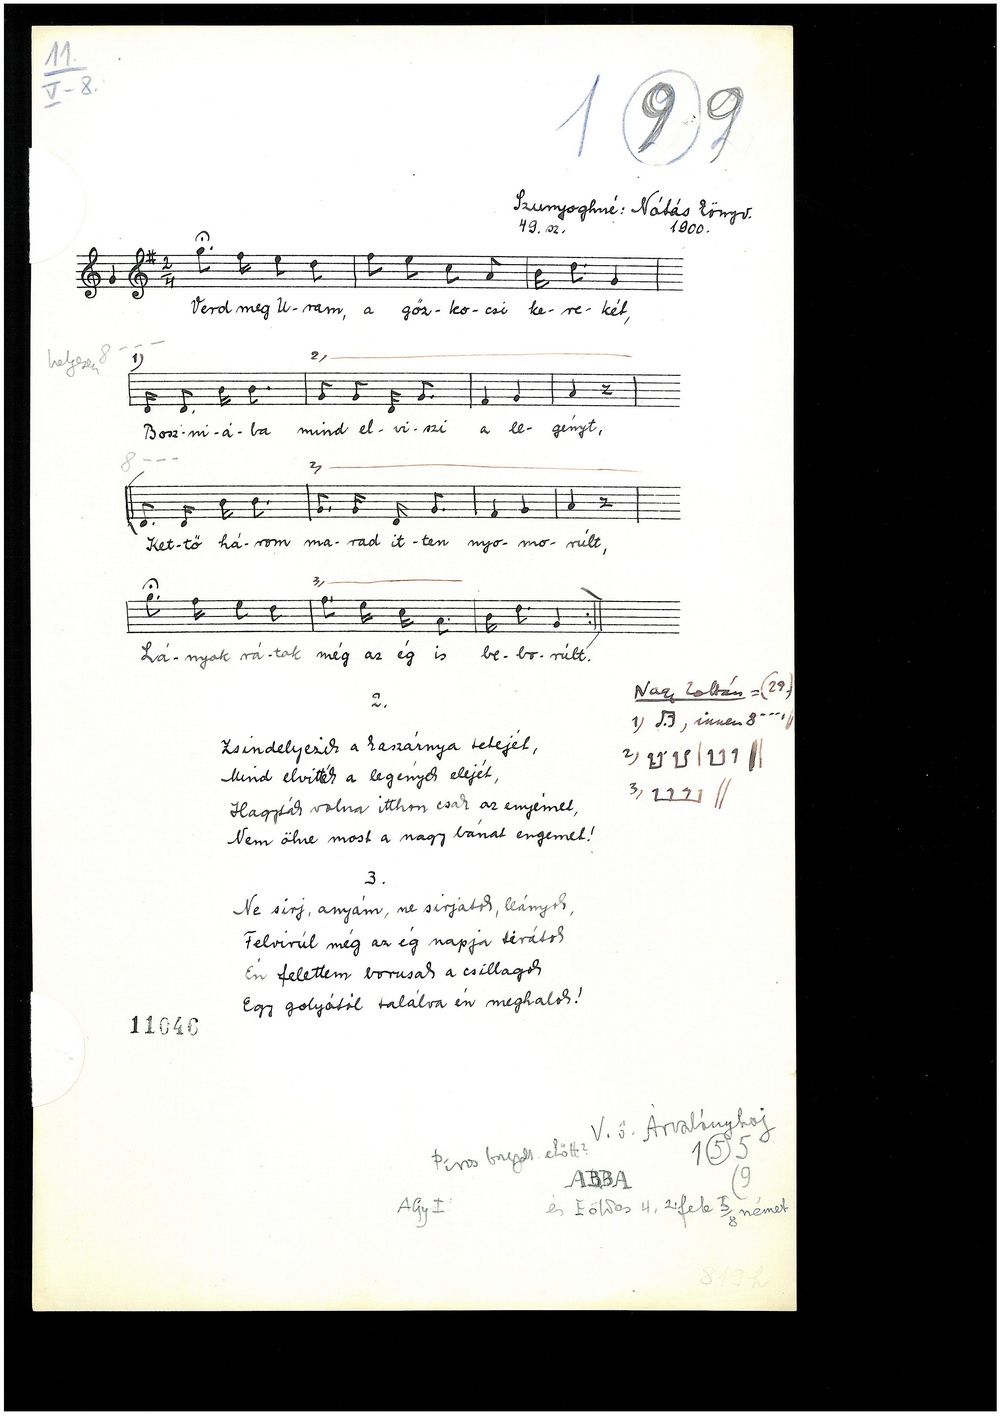 11.
V-8.
199
Szunyoghné: Nótás könyv.
49. sz. 1900.
2
4
Verd meg U-ram, a gőz-ko-csi ke-re-két,
helyesen 8 ---
1) 2,
Bosz-ni-á-ba mind el-vi-szi a le-gényt,
8 ---
2,
Ket-tő há-rom ma-rad it-ten nyo-mo-rúlt,
3,
Lá-nyok rá-tok még az ég is be-bo-rúlt.
2.
Zsindelyezik a kaszárnya tetejét,
Mind elvitték a legények elejét,
Hagyták volna itthon csak az enyémet,
Nem ölne most a nagy bánat engemet!
Nagy Zoltán = (29.)
1) , innen 8 ---
2)
3,
3.
Ne sirj, anyám, ne sirjatok, leányok,
Felvirúl még az ég napja tirátok
Én felettem borusak a csillagok
Egy golyótól találva én meghalok!
11046
V. ö. Árvalányhaj
155
(9
Piros előtt?
ABBA
AGyI
és 4. 2. fele 5/8 német